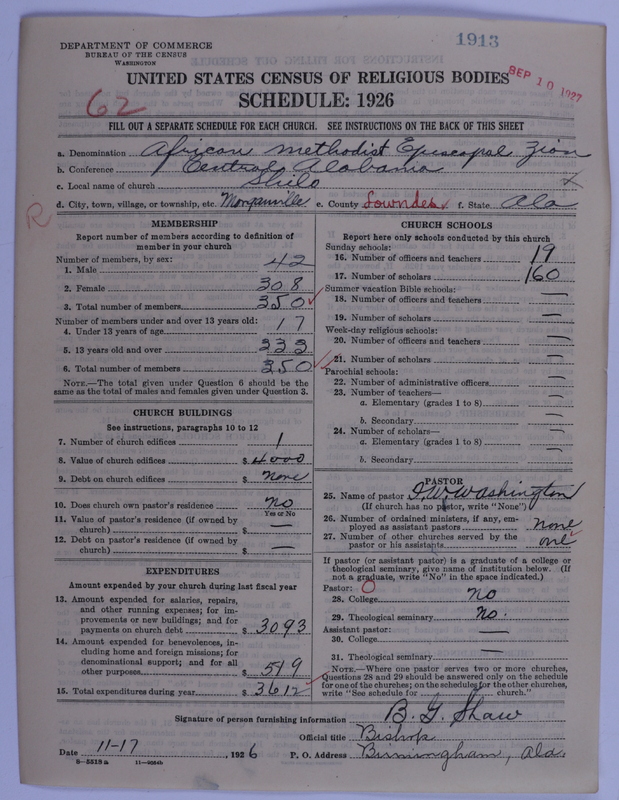 1913
SEP 10 1927
DEPARTMENT OF COMMERCE
BUREAU OF THE CENSUS
WASHINGTON
UNITED STATES CENSUS OF RELIGIOUS BODIES
SCHEDULE: 1926
62
FILL OUT A SEPARATE SCHEDULE FOR EACH CHURCH. SEE INSTRUCTIONS ON THE BACK OF THIS SHEET
a. Denomination African Methodist Episcopal Zion
b. Conference Central Alabama
c. Local name of church Shilo x
d. City, town, village, or township, etc. Morganville e. County Lowndes f. State Ala
R
MEMBERSHIP
Report number of members according to definition of
member in your church
Number of members, by sex:
1. Male 42
2. Female 308
3. Total number of members 350
Number of members under and over 13 years old:
4. Under 13 years of age 17
5. 13 years old and over 333
6. Total number of members 350
NOTE.—The total given under Question 6 should be
same as the total of males and females given under Question 3.
CHURCH BUILDINGS
See instructions, paragraphs 10 to 12
7. Number of church edifices 1
8. Value of church edifices $ 4000
9. Debt on church edifices $ none
10. Does church own pastor's residence no
Yes or No
11. Value of pastor's residence (if owned by
church) $ —
12. Debt on pastor's residence (if owned by
church) $ —
EXPENDITURES
Amount expended by your church during last fiscal year
13. Amount expended for salaries, repairs,
and other running expenses; for im-
provements or new buildings; and for
payments on church debt $ 3093
14. Amount expended for benevolences, in-
cluding home and foreign missions; for
denominational support; and for all
other purposes $ 519
15. Total expenditures during year $ 3612
CHURCH SCHOOLS
Report here only schools conducted by this church
Sunday schools:
16. Number of officers and teachers 19
17. Number of scholars 160
Summer vacation Bible schools:
18. Number of officers and teachers —
19. Number of scholars —
Week-day religious schools:
20. Number of officers and teachers —
21. Number of scholars —
Parochial schools:
22. Number of administrative officers —
23. Number of teachers—
a. Elementary (grades 1 to 8) —
b. Secondary —
24. Number of scholars—
a. Elementary (grades 1 to 8) —
b. Secondary —
PASTOR
25. Name of pastor Washington
(If church has no pastor, write "None")
26. Number of ordained ministers, if any, em-
ployed as assistant pastors none
27. Number of other churches served by the
pastor or his assistants one
If pastor (or assistant pastor) is a graduate of a college or
theological seminary, give name of institution below. (If
not a graduate, write "No" in the space indicated.)
Pastor: O
28. College no
29. Theological seminary no.
Assistant pastor:
30. College —
31. Theological seminary —
NOTE.—Where one pastor serves two or more churches,
Questions 28 and 29 should be answered only on the schedule
for one of the churches; on the schedules for the other churches,
write "See schedule for church."
Signature of person furnishing information B. G. Shaw
Official title Bishop
Date 11-17, 1926 P. O. Address Birmingham, Ala.
8-5518a 11-9084b